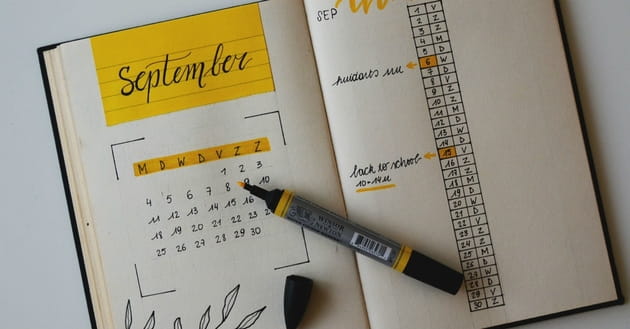 September
M D W D V Z Z
1 2 3
4 5 6 7 8 9 10
11 12 13 14 15 16
18 19 20 21 22
25 26 27 28 29 30
WINSOR
& NEWTON
SEP
1 V
2 Z
3 Z
4 M
5 D
6 W
7 D
8 V
9 Z
10 Z
11 M
12 D
13 W
14 D
15 V
16 Z
17 Z
18 M
19 D
20 W
21 D
22 V
23 Z
24 Z
25 M
26 D
27 W
28 D
29 V
30 Z
huidarts
back to school
10-14u